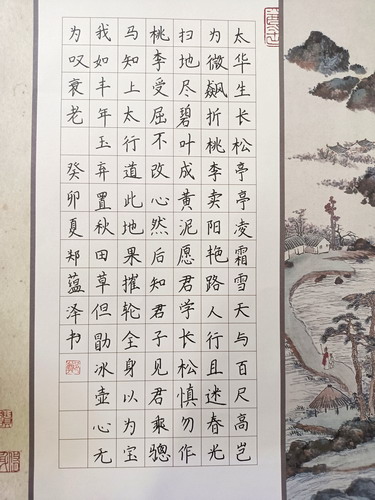 太华生长松亭亭凌霜雪天与百尺高岂
为微飙折桃李卖阳艳路人行且迷春光
扫地尽碧叶成黄泥愿君学长松慎勿作
桃李受屈不改心然后知君子见君乘骢
马知上太行道此地果摧轮全身以为宝
我如丰年玉弃置秋田草但勖冰壶心无
为叹衰老 癸卯夏郑蕴泽书